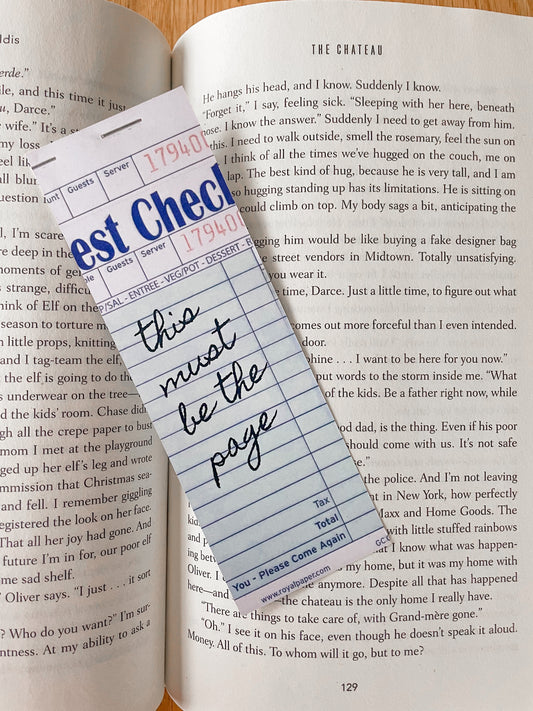 ldis
erde."
ile, and this time it just
u, Darce."
wife." It's a
my loss
eel lik
all blur
question
l, I'm scare
re deep in the
moments of ge
s strange, diffic
think of Elf on the
season to torture m
n little props, knitting
and I tag-team the elf
the elf is going to do th
s underwear on the tree—
d the kids' room. Chase did
gh all the crepe paper to bust
mom I met at the playground
ged up her elf's leg and wrote
mmission that Christmas sea-
and fell. I remember giggling
egistered the look on her face.
That all her joy had gone. And
future I'm in for, our poor elf
me sad shelf.
" Oliver says. "I just . . . it sort
? Who do you want?" I'm sur-
ntness. At my ability to ask a
unt
Guests
Server
179400
est Check
le
Guests
Server
179400
P/SAL - ENTREE - VEG/POT - DESSERT - B
this
must
be the
page
Tax
Total
You - Please Come Again
www.royalpaper.com
GC
THE CHATEAU
He hangs his head, and I know. Suddenly I know.
"Forget it," I say, feeling sick. "Sleeping with her here, beneath
nose. I know the answer." Suddenly I need to get away from him.
this. I need to walk outside, smell the rosemary, feel the sun on
I think of all the times we've hugged on the couch, me on
lap. The best kind of hug, because he is very tall, and I am
so hugging standing up has its limitations. He is sitting on
could climb on top. My body sags a bit, anticipating the
gging him would be like buying a fake designer bag
e street vendors in Midtown. Totally unsatisfying.
you wear it.
time, Darce. Just a little time, to figure out what
comes out more forceful than I even intended.
door.
phine . . . I want to be here for you now."
put words to the storm inside me. "What
of the kids. Be a father right now, while
ood dad, is the thing. Even if his poor
should come with us. It's not safe
the police. And I'm not leaving
at in New York, how perfectly
Maxx and Home Goods. The
with little stuffed rainbows
t I know what was happen-
ing between
my home, but it was my home with
Oliver. I
e anymore. Despite all that has happened
here—and
—the chateau is the only home I really have.
"There are things to take care of, with Grand-mère gone."
"Oh." I see it on his face, even though he doesn't speak it aloud.
Money. All of this. To whom will it go, but to me?
129